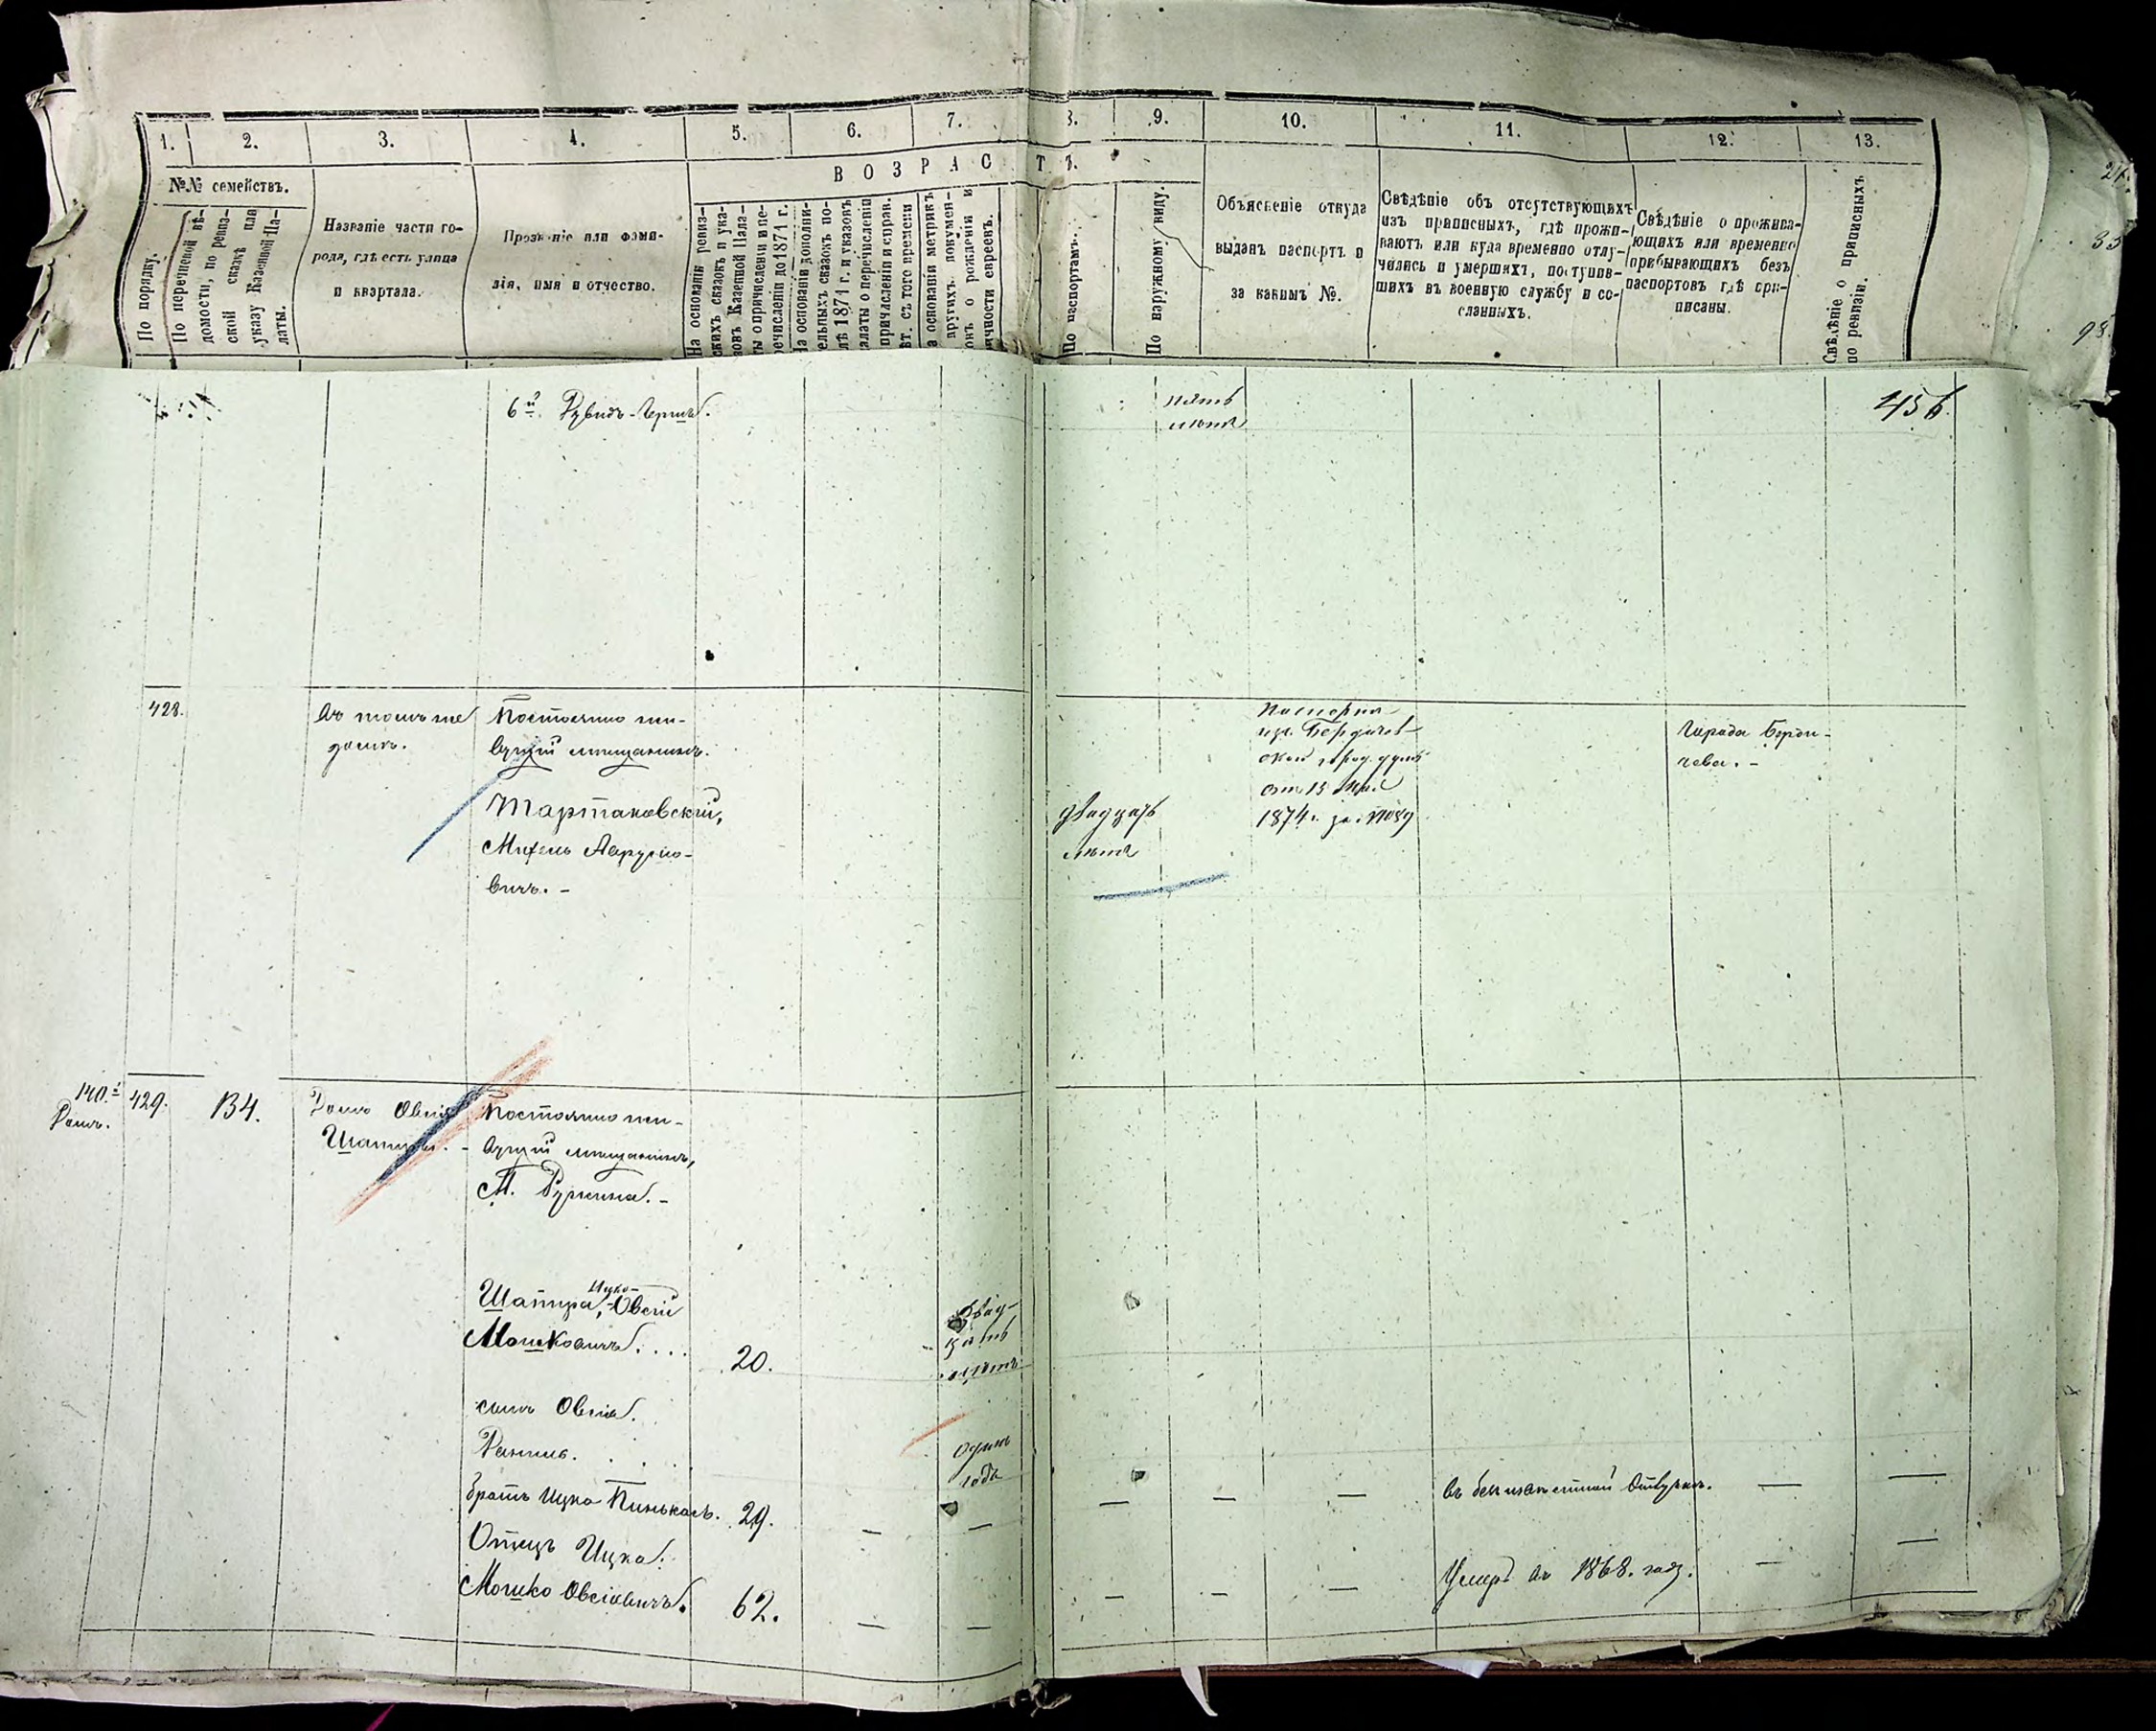 1.
2.
3.
4.
5.
6.
7.
8.
9.
10.
11.
12.
13.
№№ семействъ.
ВОЗРАСТЪ.
По порядку.
По перечневой вѣ-
домости, по ревиз-
ской сказкѣ или
указу Казенной Па-
латы.
Названіе части го-
рода, гдѣ есть улица
и квартала.
Прозваніе или фами-
лія, имя и отчество.
На основаніи ревиз-
скихъ сказокъ и ука-
зовъ Казенной Пала-
ты о причисленіи и пе-
речисленіи до 1871 г.
На основаніи дополни-
тельныхъ сказокъ по-
слѣ 1871 г. и указовъ
палаты о перечисленіи
причисленіи и справ.
лѣт. съ того времени
На основаніи метрикъ
другихъ докумен-
товъ о рожденіи и
личности евреевъ.
По паспортамъ.
По наружному виду.
Объясненіе откуда
выданъ паспортъ и
за какимъ №.
Свѣдѣніе объ отсутствующихъ
изъ приписныхъ, гдѣ прожи-
ваютъ или куда временно отлу-
чились и умершихъ, поступив-
шихъ въ военную службу и со-
сланныхъ.
Свѣдѣніе о прожива-
ющихъ или временно
прибывающихъ безъ
паспортовъ гдѣ при-
писаны.
Свѣдѣніе о приписныхъ
по ревизіи.
6й. Рувидъ-Герша.
пять
лѣтъ
456.
428.
Въ томъ же
домѣ.
Постоянно жи-
вущій мѣщанинъ.
Тартаковскій,
Михель Аврумо-
вичъ. -
двадцать
лѣтъ
Паспортъ
изъ Бердичев-
ской город. думы
от 15 Мая
1874 г. за №
Города Берди-
чева. -
140й
Домъ.
429.
134.
Домъ Овсія
Шапиры. -
Постоянно жи-
вущій мѣщанинъ,
М. Ружина. -
Шапира, Ицко-Овсій
Мошковичъ....
20.
двад-
цать
лѣтъ
сынъ Овсія.
Рахмиль.
одинъ
годъ
братъ Ицка Пинькасъ.
29.
въ безъизвѣстной Отлучкѣ.
Отецъ Ицка.
Мошко Овсіовичъ.
62.
Умеръ въ 1868. году.